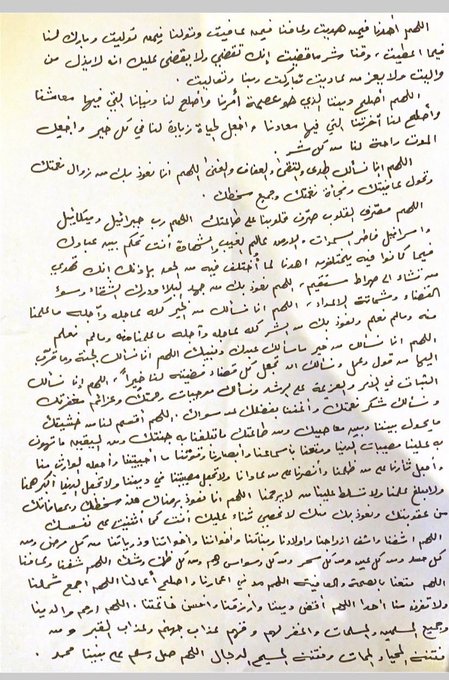 اللهم اهدنا فيمن هديت وعافنا فيمن عافيت وتولنا فيمن توليت وبارك لنا
فيما اعطيت، وقنا شر ما قضيت انك تقضي ولا يقضى عليك انه لا يذل من
واليت ولا يعز من عاديت تباركت ربنا وتعاليت.
اللهم أصلح ديننا الذي هو عصمة أمرنا وأصلح لنا دنيانا التي فيها معاشنا
وأصلح لنا آخرتنا التي فيها معادنا واجعل الحياة زيادة لنا في كل خير واجعل
الموت راحة لنا من كل شر.
اللهم انا نسألك الهدى والتقى والعفاف والغنى اللهم انا نعوذ بك من زوال نعمتك
وتحول عافيتك وفجأة نقمتك وجميع سخطك.
اللهم مصرف القلوب صرف قلوبنا على طاعتك اللهم رب جبرائيل وميكائيل
واسرافيل فاطر السموات والارض عالم الغيب والشهادة أنت تحكم بين عبادك
فيما كانوا فيه يختلفون اهدنا لما أختلف فيه من الحق بإذنك انك تهدي
من تشاء الى صراط مستقيم، اللهم نعوذ بك من جهد البلاء ودرك الشقاء وسوء
القضاء وشماتة الاعداء، اللهم انا نسألك من الخير كله عاجله وآجله ما علمنا
منه وما لم نعلم ونعوذ بك من الشر كله عاجله وآجله ما علمنا منه وما لم نعلم
اللهم انا نسألك من خير ما سألك عبدك ونبيك اللهم انا نسألك الجنة وما قرب
اليها من قول وعمل ونسألك ان تجعل كل قضاء قضيته لنا خيراً، اللهم إنا نسألك
الثبات في الأمر والعزيمة على الرشد ونسألك موجبات رحمتك وعزائم مغفرتك
ونسألك شكر نعمتك وأغننا بفضلك عمن سواك. اللهم اقسم لنا من خشيتك
ما يحول بيننا وبين معاصيك ومن طاعتك ما تبلغنا به جنتك ومن اليقين ما تهون
به علينا مصيبات الدنيا ومتعنا بأسماعنا وأبصارنا وقوتنا ما أحييتنا واجعله الوارث منا
واجعل ثأرنا على من ظلمنا وأنصرنا على من عادانا ولا تجعل مصيبتنا في ديننا ولا تجعل الدنيا أكبر همنا
ولا مبلغ علمنا ولا تسلط علينا من لا يرحمنا اللهم انا نعوذ برضاك من سخطك وبمعافاتك
من عقوبتك ونعوذ بك منك لا نحصي ثناء عليك أنت كما أثنيت على نفسك
اللهم اشفنا واشف ازواجنا واولادنا وبناتنا واخواننا واخواتنا وذرياتنا من كل مرض ومن
كل حسد ومن كل عين ومن كل سحر ومن كل وسواس وهم ومن كل اللهم اشفنا وعافنا
اللهم متعنا بالصحة والعافية اللهم مد في اعمارنا واصلح أعمالنا اللهم اجمع شملنا
ولا تفرق منا أحدا اللهم افقهنا ديننا وارزقنا واحسن خاتمتنا. اللهم ارحم والدينا
وجميع المسلمين والمسلمات واغفر لهم وقهم عذاب جهنم وعذاب القبر ومن
فتنة المحيا والممات وفتنة المسيح الدجال اللهم صل وسلم على نبينا محمد.